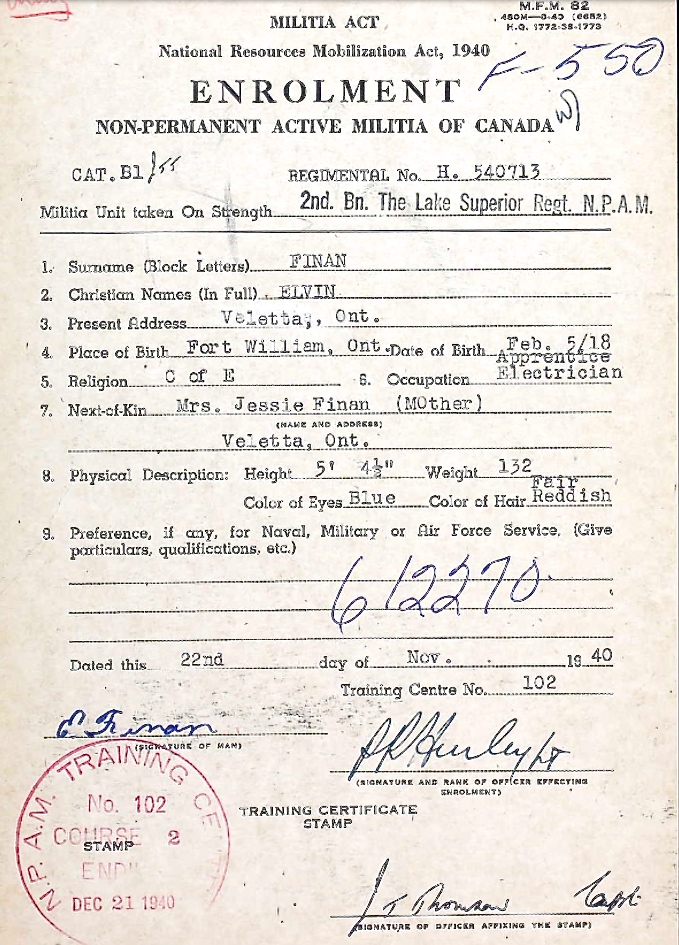 M.F.M. 82
MILITIA ACT
450M—8-40 (6682)
H.Q. 1772-39-1773
National Resources Mobilization Act, 1940
F-550
ENROLMENT
NON-PERMANENT ACTIVE MILITIA OF CANADA
CAT. B1 REGIMENTAL No. H. 540713
Militia Unit taken On Strength 2nd. Bn. The Lake Superior Regt. N.P.A.M.
1. Surname (Block Letters) FINAN
2. Christian Names (In Full) ELVIN
3. Present Address Veletta, Ont.
4. Place of Birth Fort William, Ont. Date of Birth Feb. 5/18
5. Religion C of E 6. Occupation Apprentice Electrician
7. Next-of-Kin Mrs. Jessie Finan (MOther)
(NAME AND ADDRESS)
Veletta, Ont.
8. Physical Description: Height 5' 4½" Weight 132
Color of Eyes Blue Color of Hair Fair Reddish
9. Preference, if any, for Naval, Military or Air Force Service. (Give
particulars, qualifications, etc.)
612270
Dated this 22nd day of Nov. 1940
Training Centre No. 102
E Finan
(SIGNATURE OF MAN)
Hurley Lt
(SIGNATURE AND RANK OF OFFICER EFFECTING
ENROLMENT)
TRAINING CERTIFICATE
STAMP
N.P.A.M. TRAINING CE
No. 102
COURSE 2
STAMP
DEC 21 1940
J T Thomson Capt.
(SIGNATURE OF OFFICER AFFIXING THE STAMP)